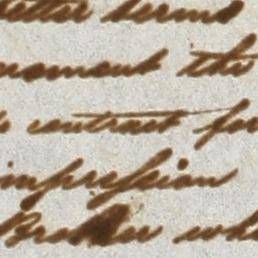 better terms
moment the
contract for
impression
Brother who